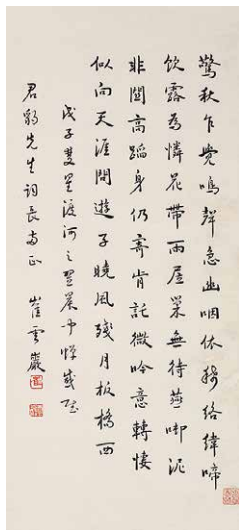 驚秋乍覺鳴聲急幽咽休猜絡緯啼
飲露為憐花帶雨屋巢無待燕啣泥
非關高蹈身仍寄肯託微吟意轉悽
似向天涯問遊子曉風殘月板橋西
戊子雙星渡河之翌晨
君豹先生詞長兩正
雲巖